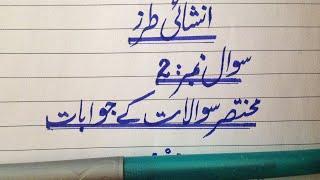 انشائی طرز
سوال نمبر: 2
مختصر سوالات کے جوابات